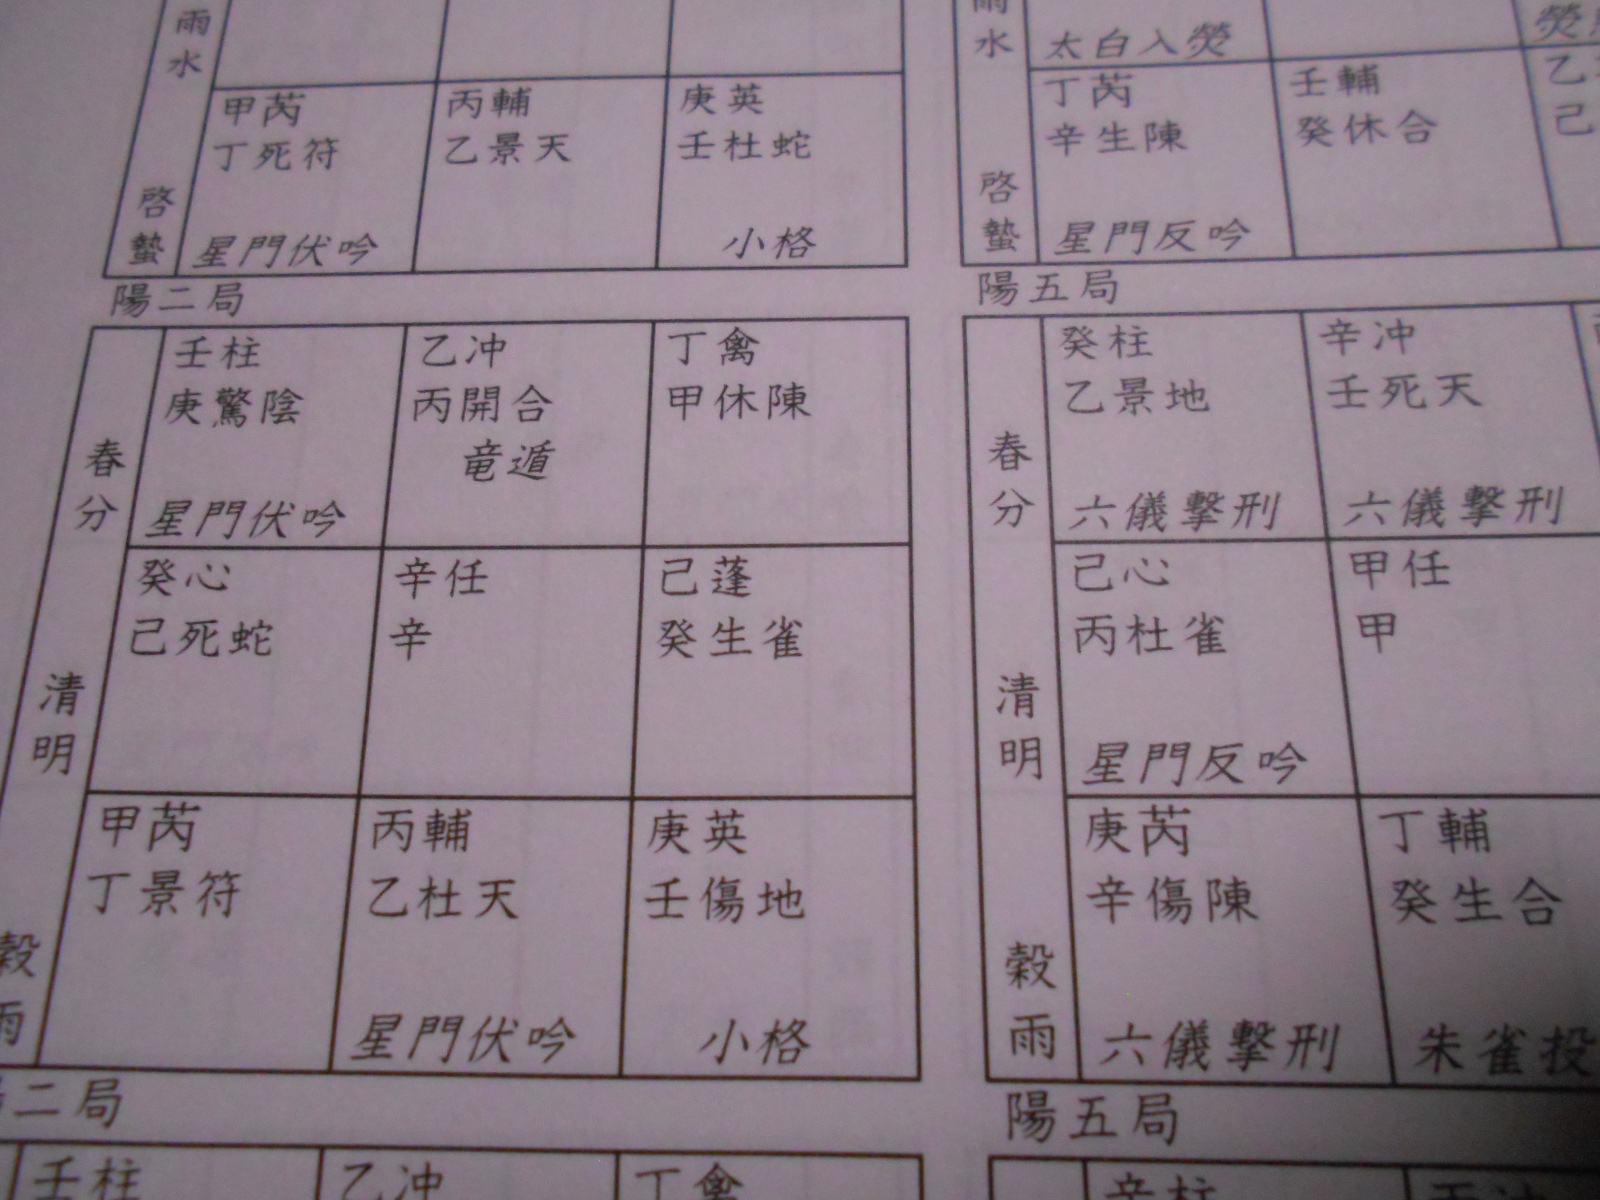 雨水
啓蟄
甲芮
丁死符
星門伏吟
丙輔
乙景天
庚英
壬杜蛇
小格
雨水
啓蟄
太白入熒
丁芮
辛生陳
星門反吟
壬輔
癸休合
乙
己
陽二局
春分
清明
穀雨
壬柱
庚驚陰
星門伏吟
乙冲
丙開合
竜遁
丁禽
甲休陳
癸心
己死蛇
辛任
辛
己蓬
癸生雀
甲芮
丁景符
丙輔
乙杜天
星門伏吟
庚英
壬傷地
小格
陽五局
春分
清明
穀雨
癸柱
乙景地
六儀撃刑
辛冲
壬死天
六儀撃刑
己心
丙杜雀
星門反吟
甲任
甲
庚芮
辛傷陳
六儀撃刑
丁輔
癸生合
朱雀投
二局
壬柱
乙冲
丁禽
陽五局
辛柱